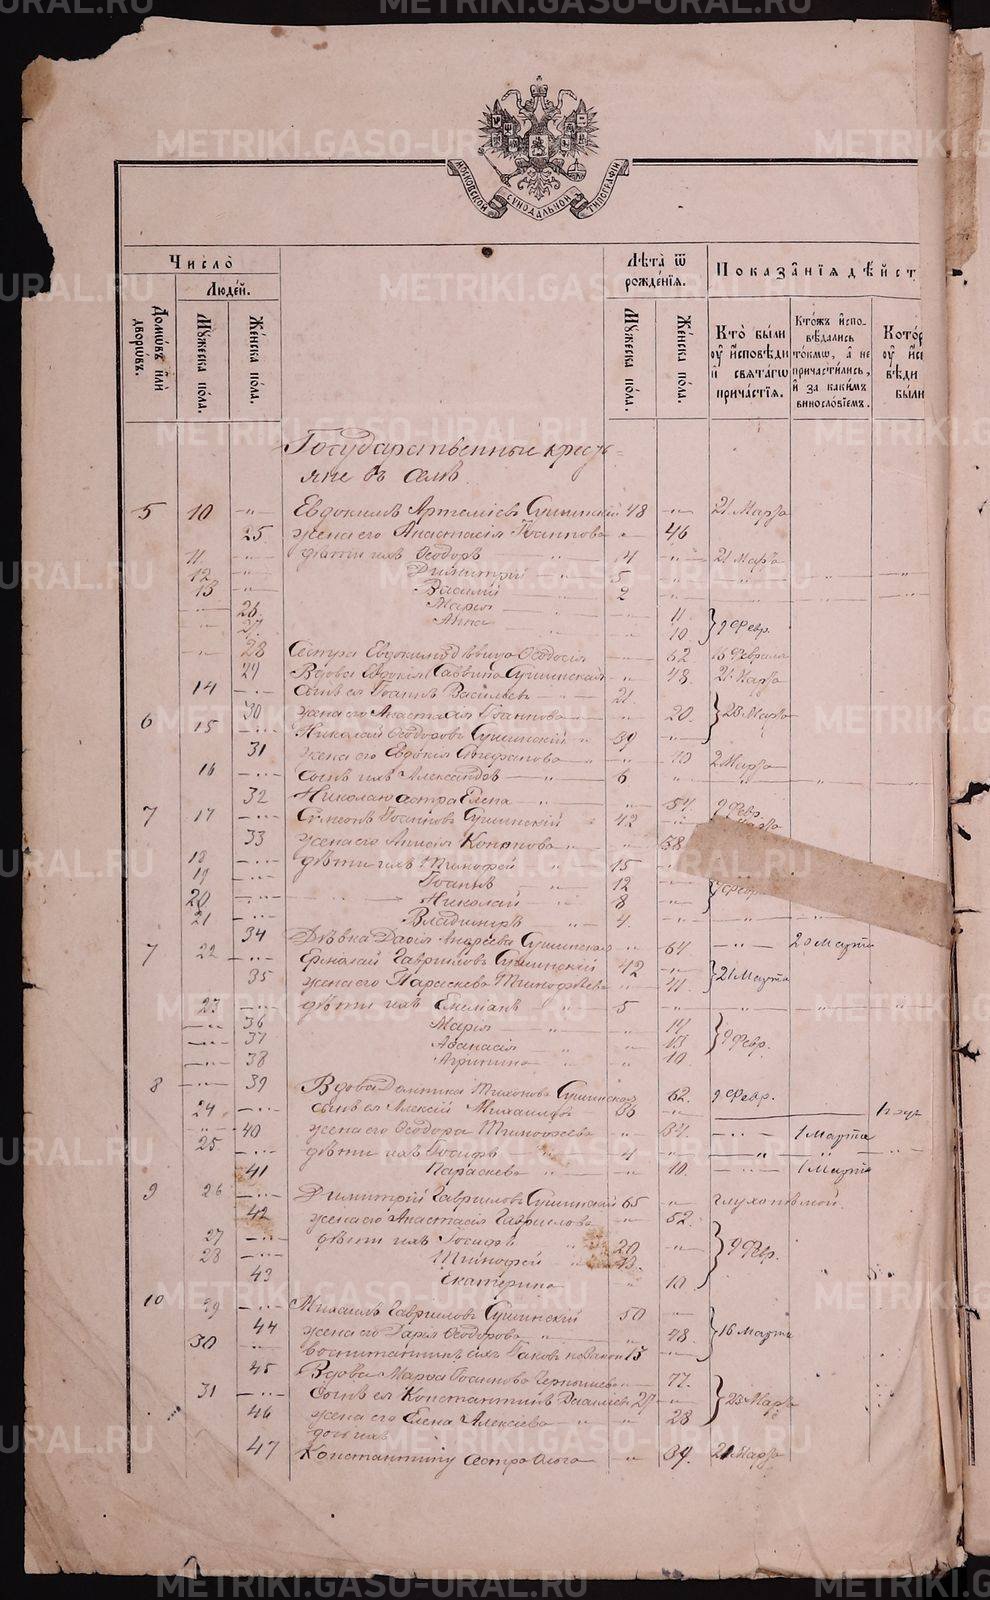 МОСКОВСКОЙ СѴНОДАЛЬНОЙ ТИПОГРАФІИ
Число̀
Людéй.
Домѡ́въ и҆лѝ дворѡ́въ.
Мꙋ́жеска по́ла.
Же́нска по́ла.
Лѣ́та ѿ рождéнїѧ.
Мꙋ́жеска по́ла.
Же́нска по́ла.
Показа̑нїѧ дѣ́йст
Кто̀ бы́ли ᲂу҆ и҆сповѣ́ди и҆ свѧта́гѡ причáстїѧ.
Кто́жъ и҆спо-
вѣ́дались
то́кмѡ, а҆ не
причасти́лись,
и҆ за каки́мъ
винослóвїемъ.
Кото́р
ᲂу҆ и҆с
вѣ́ди
бы́ли
Государственные кресть=
яне въ селѣ
5 10 -"- Евдокимъ Артеміевъ Сушинскій 48 -"- 21 Марта
25 жена его Анастасія Іоаннова " 46
11 -"- дѣти ихъ Ѳеодоръ 14 -"- 21 Марта
12 -"- Димитрій 5
13 -"- Василій 2
26 Марія 11
27 Анна 10 } 9 Февр.
28 Сестра Евдокима дѣвица Ѳеодосія 62 16 Февраля
29 Вдова Евдокія Саввина Сушинская 48 21 Марта
14 сынъ ея Іоаннъ Васильевъ 21
30 жена его Анастасія Іоаннова 20 } 23 Марта
6 15 Николай Ѳеодоровъ Сушинскій 39
31 жена его Евдокія Стефанова 2 Марта
16 сынъ ихъ Александръ 6
32 Николаю сестра Елена 54 9 Февр.
7 17 Симеонъ Іоанновъ Сушинскій 42
33 жена его Кононова 38
18 дѣти ихъ Тимофей 15
19 Іоаннъ 12
20 Николай 8 Февр
21 Владиміръ 4
34 Дѣвка Дарія Андреева Сушинская 64 20 Марта
7 22 Ермолай Гавриловъ Сушинскій 42
35 жена его Параскева Тимофѣева 41 } 21 Марта
23 дѣти ихъ Емеліанъ 5
36 Марія 14
37 Аѳанасія 13 } 9 Февр.
38 Агрипина 10
8 39 Вдова Домника Тихонова Сушинская 62 9 Февр.
24 сынъ ея Алексій Михаиловъ 36
40 жена его Ѳеодора Тимофѣева 34 1 Марта
25 дѣти ихъ Іосифъ 4
41 Параскева 10 1 Марта
9 26 Димитрій Гавриловъ Сушинскій 65 глухонѣмой.
42 жена его Анастасія Гаврилова 52
27 дѣти ихъ Іосифъ 20 } 9 Фвр.
28 Тимофей 13
43 Екатерина 10
10 29 Михаилъ Гавриловъ Сушинскій 50
44 жена его Дарья Ѳеодорова 48 } 16 Марта
30 воспитанникъ ихъ Іаковъ 15
45 Вдова Марѳа Чернышева 77
31 Сынъ ея Константинъ 27 } 23 Марта
46 жена его Елена Алексіева 28
дочь ихъ
47 Константину сестра Ольга 34. 21 Марта
METRIKI.GASO-URAL.RU